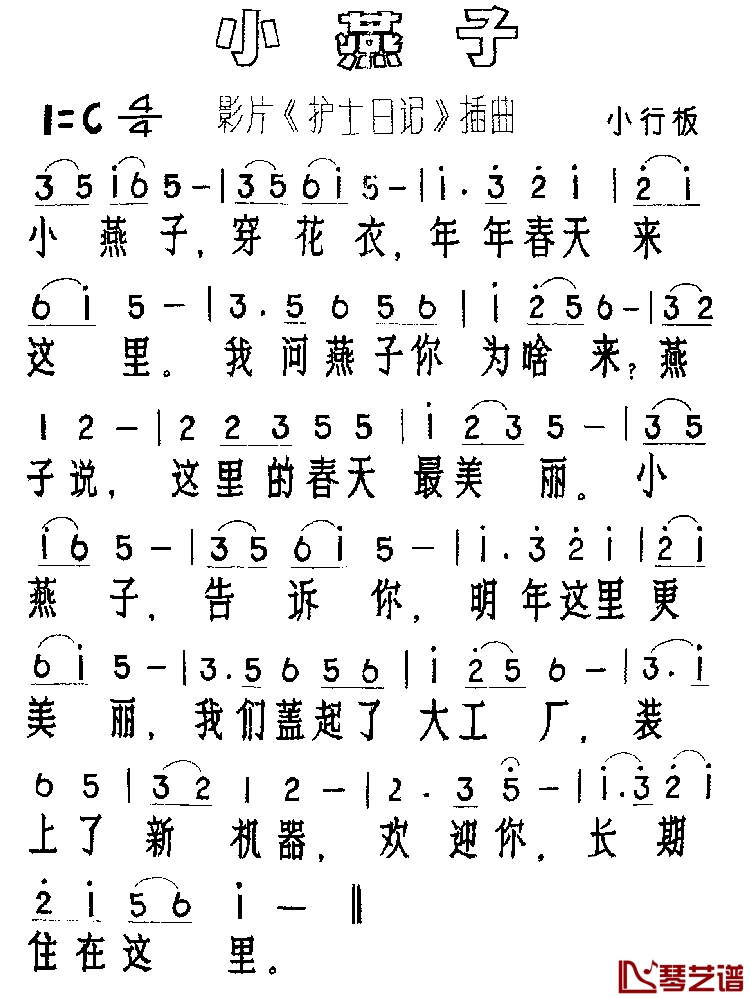 小燕子
1=C 4/4 影片《护士日记》插曲 小行板
3 5 i 6 5 - | 3 5 6 i 5 - | i . 3 2 i | 2 i
小燕子，穿花衣，年年春天来
6 i 5 - | 3 . 5 6 5 6 | i 2 5 6 - | 3 2
这里。我问燕子你为啥来？燕
1 2 - | 2 2 3 5 5 | i 2 3 5 - | 3 5
子说，这里的春天最美丽。小
i 6 5 - | 3 5 6 i 5 - | i . 3 2 i | 2 i
燕子，告诉你，明年这里更
6 i 5 - | 3 . 5 6 5 6 | i 2 5 6 - | 3 . i
美丽，我们蓋起了大工厂，装
6 5 | 3 2 1 2 - | 2 . 3 5 - | i . 3 2 i
上了新机器，欢迎你，长期
2 i 5 6 i — ‖
住在这里。
琴艺谱